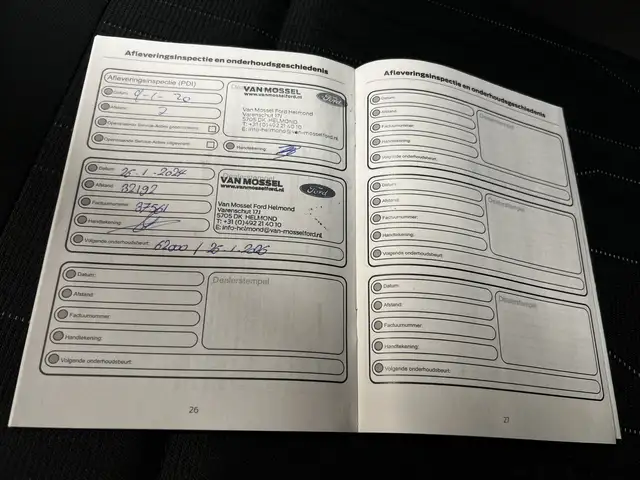 Afleveringsinspectie en onderhoudsgeschiedenis
Afleveringsinspectie (PDI)
Datum: 9-1-20
VAN MOSSEL
www.vanmosselford.nl
Ford
Van Mossel Ford Helmond
Varenschut 17J
5705 DK HELMOND
T: +31 (0)492 21 40 10
E: info-helmond@van-mosselford.nl
Handtekening:
Datum: 25-1-2024
Afstand: 32192
Factuurnummer:
Handtekening:
VAN MOSSEL
www.vanmosselford.nl
Ford
Van Mossel Ford Helmond
Varenschut 17J
5705 DK HELMOND
T: +31 (0)492 21 40 10
E: info-helmond@van-mosselford.nl
Volgende onderhoudsbeurt: 62000 /
Datum:
Afstand:
Factuurnummer:
Handtekening:
Volgende onderhoudsbeurt:
Dealerstempel
26
Afleveringsinspectie en onderhoudsgeschiedenis
Datum:
Afstand:
Factuurnummer:
Handtekening:
Volgende onderhoudsbeurt:
Dealerstempel
Datum:
Afstand:
Factuurnummer:
Handtekening:
Volgende onderhoudsbeurt:
Dealerstempel
Datum:
Afstand:
Factuurnummer:
Handtekening:
Volgende onderhoudsbeurt:
Dealerstempel
27